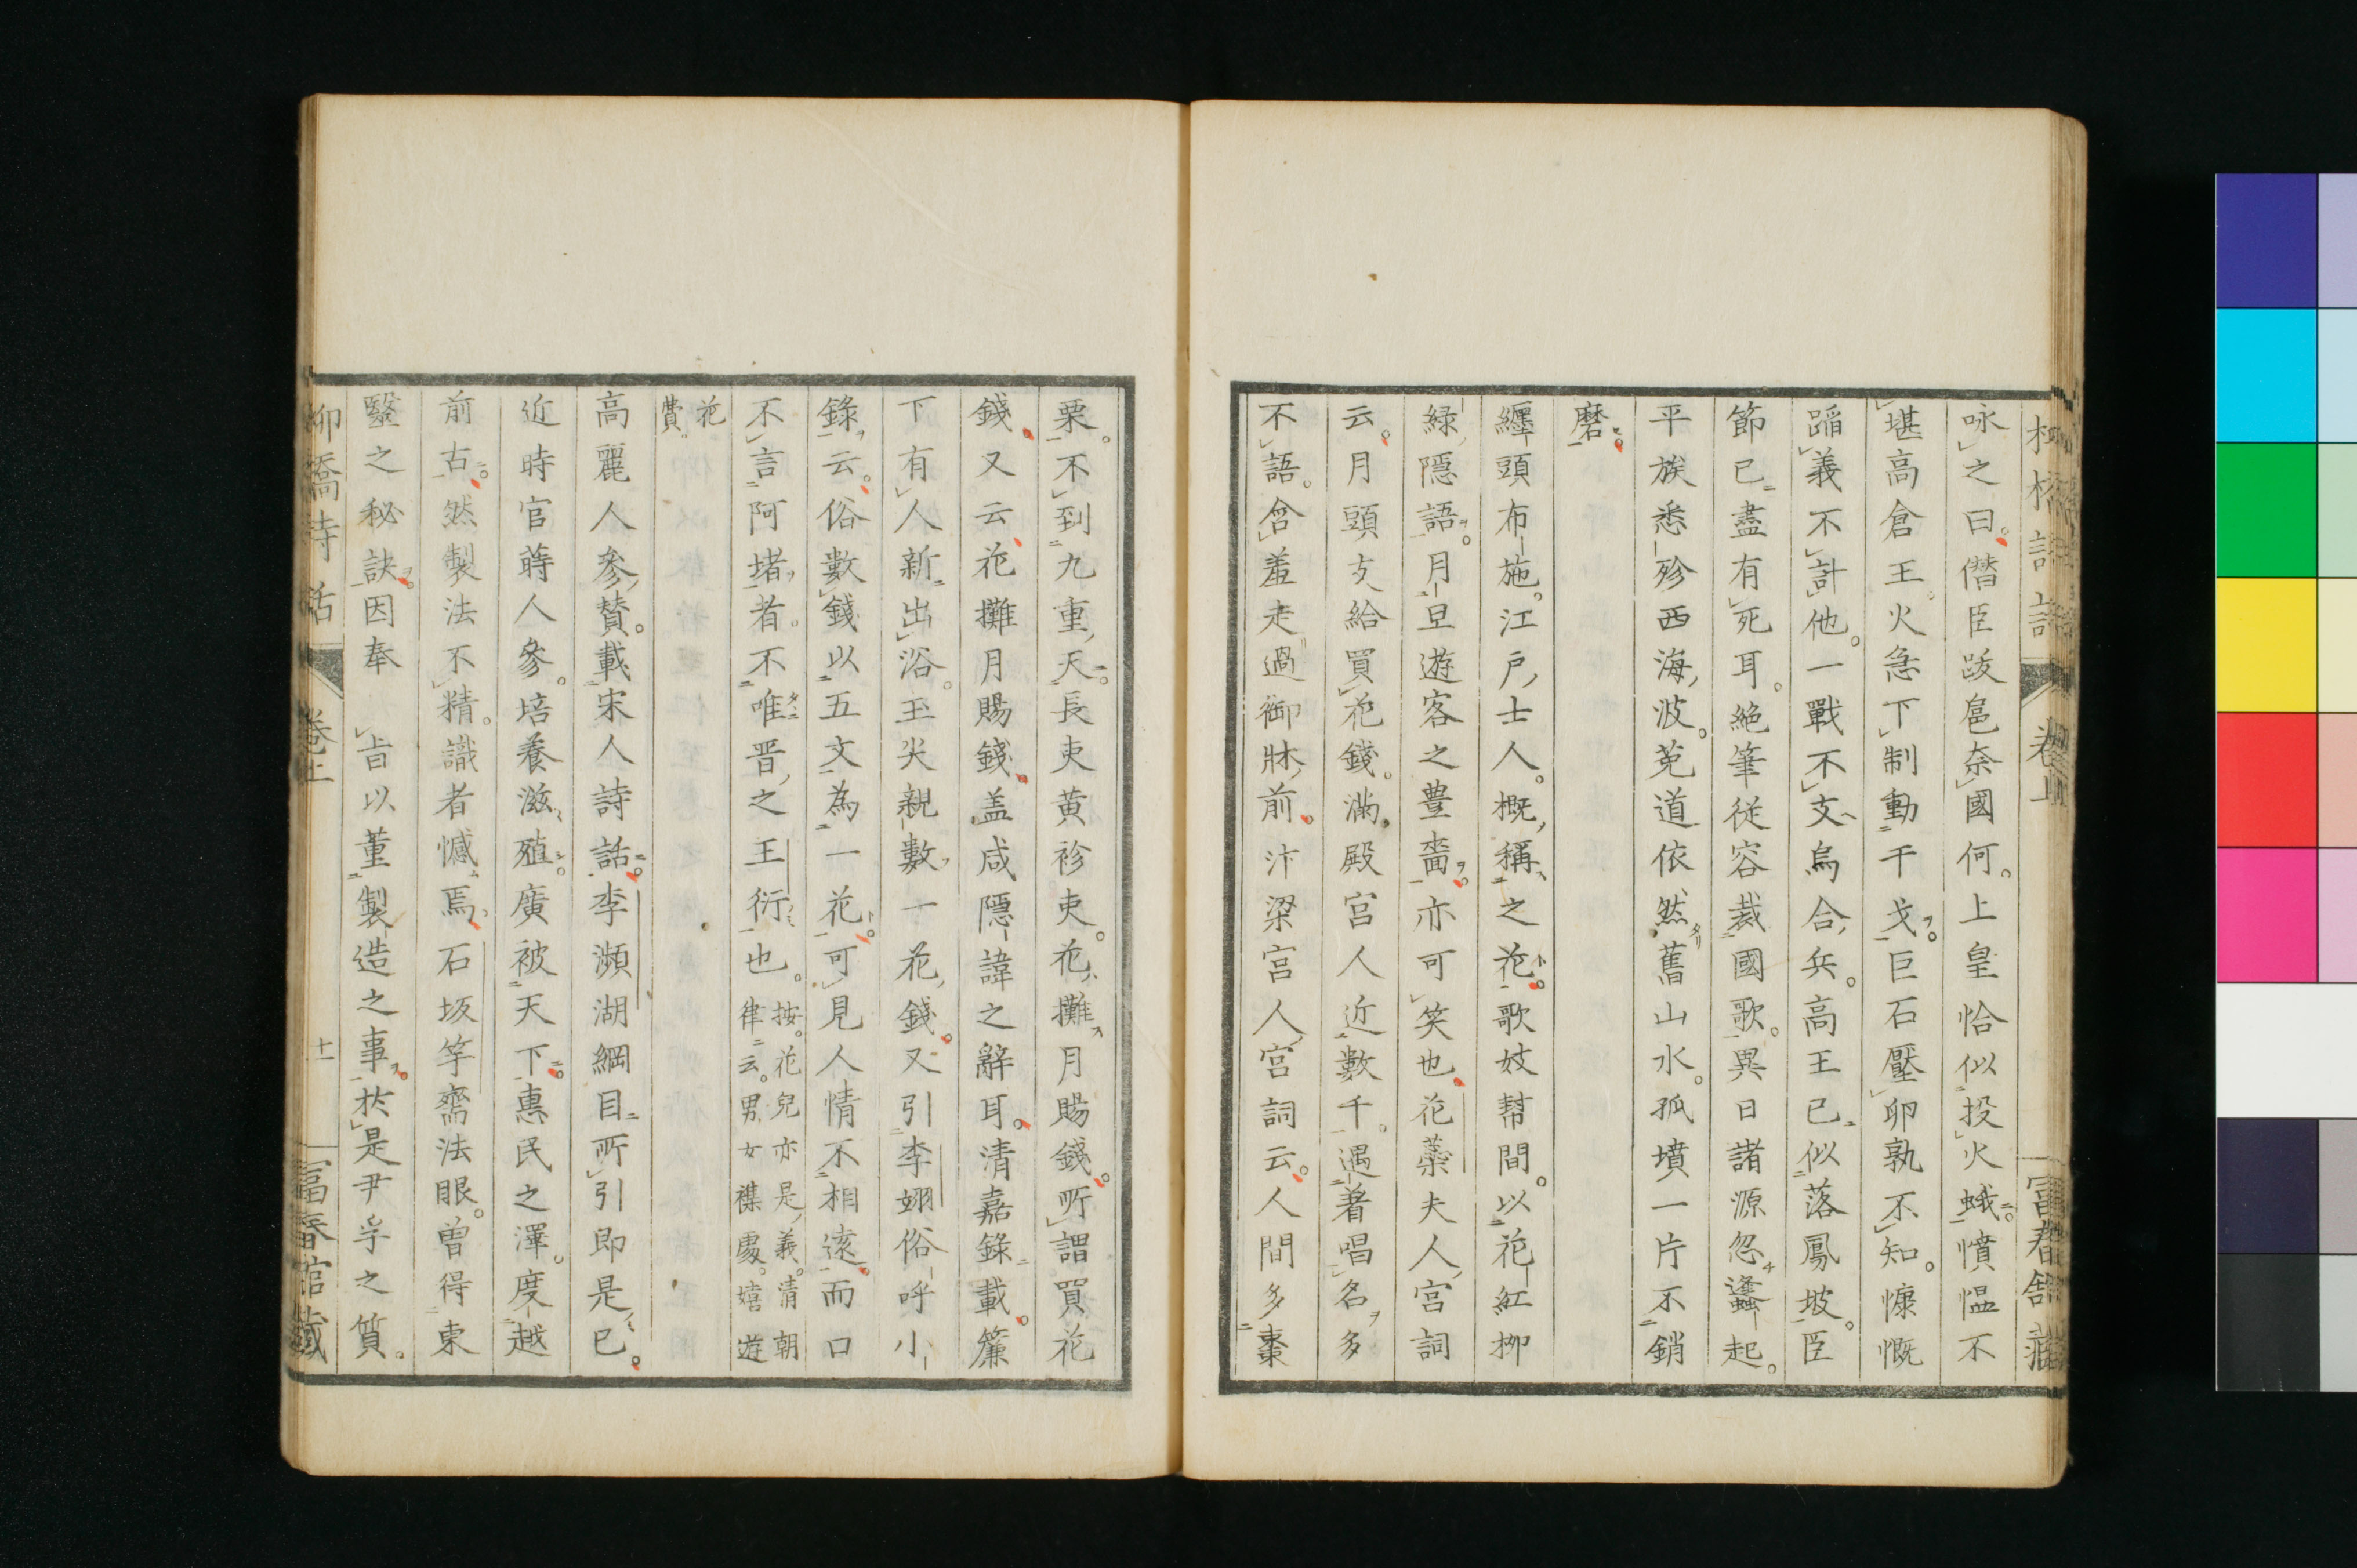 咏之曰僭臣跋扈奈國何上皇恰似投火蛾憤愠不
堪高倉王火急下制動干戈巨石壓卵孰不知慷慨
蹈義不計他一戰不支烏合兵高王已似落鳳坡臣
節已盡有死耳絶筆從容裁國歌異日諸源忽蠭起
平族悉殄西海波菟道依然舊山水孤墳一片不銷
磨
纏頭布施江戶士人概稱之花歌妓幇間以花紅柳
緑隱語月旦遊客之豊嗇亦可笑也花蘂夫人宮詞
云月頭支給買花錢滿殿宮人近數千遇著唱名多
不語含羞走過御牀前汴梁宮人宮詞云人間多棗
栗不到九重天長吏黄衫吏花攤月賜錢所謂買花
錢又云花攤月賜錢盖咸隱諱之辭耳清嘉錄載簾
下有人新出浴玉尖親數一花錢又引李嫏俗呼小
錄云俗數錢以五文為一花可見人情不相遠而口
不言阿堵者不唯晋之王衍也按花兒亦是義清朝
律云男女襍處嬉遊
花
費
高麗人參贊載宋人詩話李瀕湖綱目所引即是已
近時官蒔人參培養滋殖廣被天下惠民之澤度越
前古然製法不精識者憾焉石坂竽齋法眼曽得東
醫之秘訣因奉旨以董製造之事扵是尹孚之質
柳橋詩話
卷上
十一
富春館藏